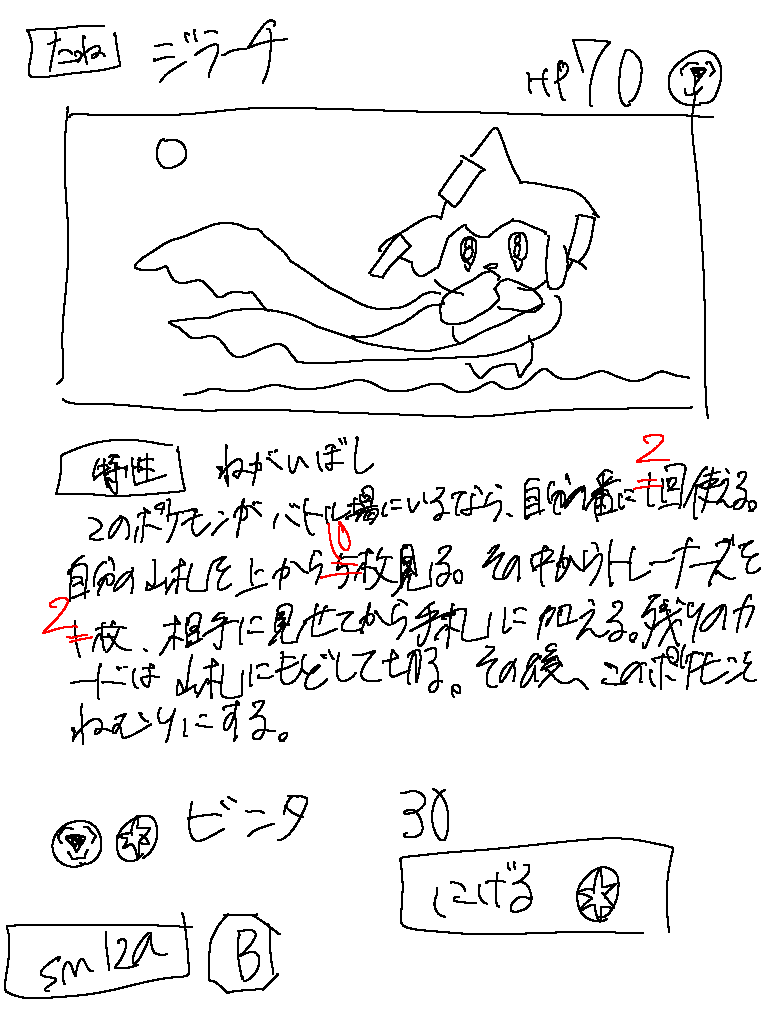 たね ジラーチ HP70
特性 ねがいぼし
このポケモンがバトル場にいるなら、自分の番に1回使える。
2
自分の山札を上から5枚見る。その中からトレーナーズを
10
1枚、相手に見せてから手札に加える。残りのカ
2
ードは山札にもどして切る。その後、このポケモンを
ねむりにする。
ビンタ 30
にげる
sm12a B